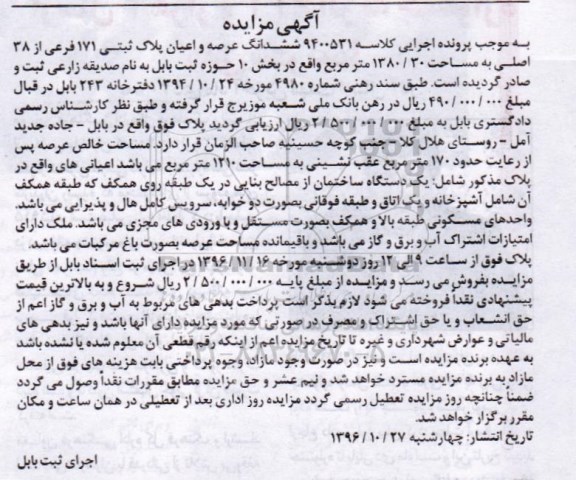 آگهی مزایده
به موجب پرونده اجرایی کلاسه ۹۴۰۰۵۳۱ ششدانگ عرصه و اعیان پلاک ثبتی ۱۷۱ فرعی از ۳۸
اصلی به مساحت ۱۳۸۰/۳۰ متر مربع واقع در بخش ۱۰ حوزه ثبت بابل به نام صدیقه زارعی ثبت و
صادر گردیده است. طبق سند رهنی شماره ۴۹۸۰ مورخه ۱۳۹۴/۱۰/۲۴ دفترخانه ۲۴۳ بابل در قبال
مبلغ ۴۹۰/۰۰۰/۰۰۰ ریال در رهن بانک ملی شعبه موزیرج قرار گرفته و طبق نظر کارشناس رسمی
دادگستری بابل به مبلغ ۲/۵۰۰/۰۰۰/۰۰۰ ریال ارزیابی گردید پلاک فوق واقع در بابل - جاده جدید
آمل - روستای هلال کلا - جنب کوچه حسینیه صاحب الزمان قرار دارد. مساحت خالص عرصه پس
از رعایت حدود ۱۷۰ متر مربع عقب نشینی به مساحت ۱۲۱۰ متر مربع می باشد اعیانی های واقع در
پلاک مذکور شامل: یک دستگاه ساختمان از مصالح بنایی در یک طبقه روی همکف که طبقه همکف
آن شامل آشپزخانه و یک اتاق و طبقه فوقانی بصورت دو خوابه، سرویس کامل هال و پذیرایی می باشد.
واحدهای مسکونی طبقه بالا و همکف بصورت مستقل و با ورودی های مجزی می باشد. ملک دارای
امتیازات اشتراک آب و برق و گاز می باشد و باقیمانده مساحت عرصه بصورت باغ مرکبات می باشد.
پلاک فوق از ساعت ۹ الی ۱۲ روز دوشنبه مورخه ۱۳۹۶/۱۱/۱۶ در اجرای ثبت اسناد بابل از طریق
مزایده بفروش می رسد و مزایده از مبلغ پایه ۲/۵۰۰/۰۰۰/۰۰۰ ریال شروع و به بالاترین قیمت
پیشنهادی نقداً فروخته می شود لازم بذکر است پرداخت بدهی های مربوط به آب و برق و گاز اعم از
حق انشعاب و یا حق اشتراک و مصرف در صورتی که مورد مزایده دارای آنها باشد و نیز بدهی های
مالیاتی و عوارض شهرداری و غیره تا تاریخ مزایده اعم از اینکه رقم قطعی آن معلوم شده یا نشده باشد
به عهده برنده مزایده است و نیز در صورت وجود مازاد، وجوه پرداختی بابت هزینه های فوق از محل
مازاد به برنده مزایده مسترد خواهد شد و نیم عشر و حق مزایده مطابق مقررات نقداً وصول می گردد
ضمناً چنانچه روز مزایده تعطیل رسمی گردد مزایده روز اداری بعد از تعطیلی در همان ساعت و مکان
مقرر برگزار خواهد شد.
تاریخ انتشار: چهارشنبه ۱۳۹۶/۱۰/۲۷
اجرای ثبت بابل